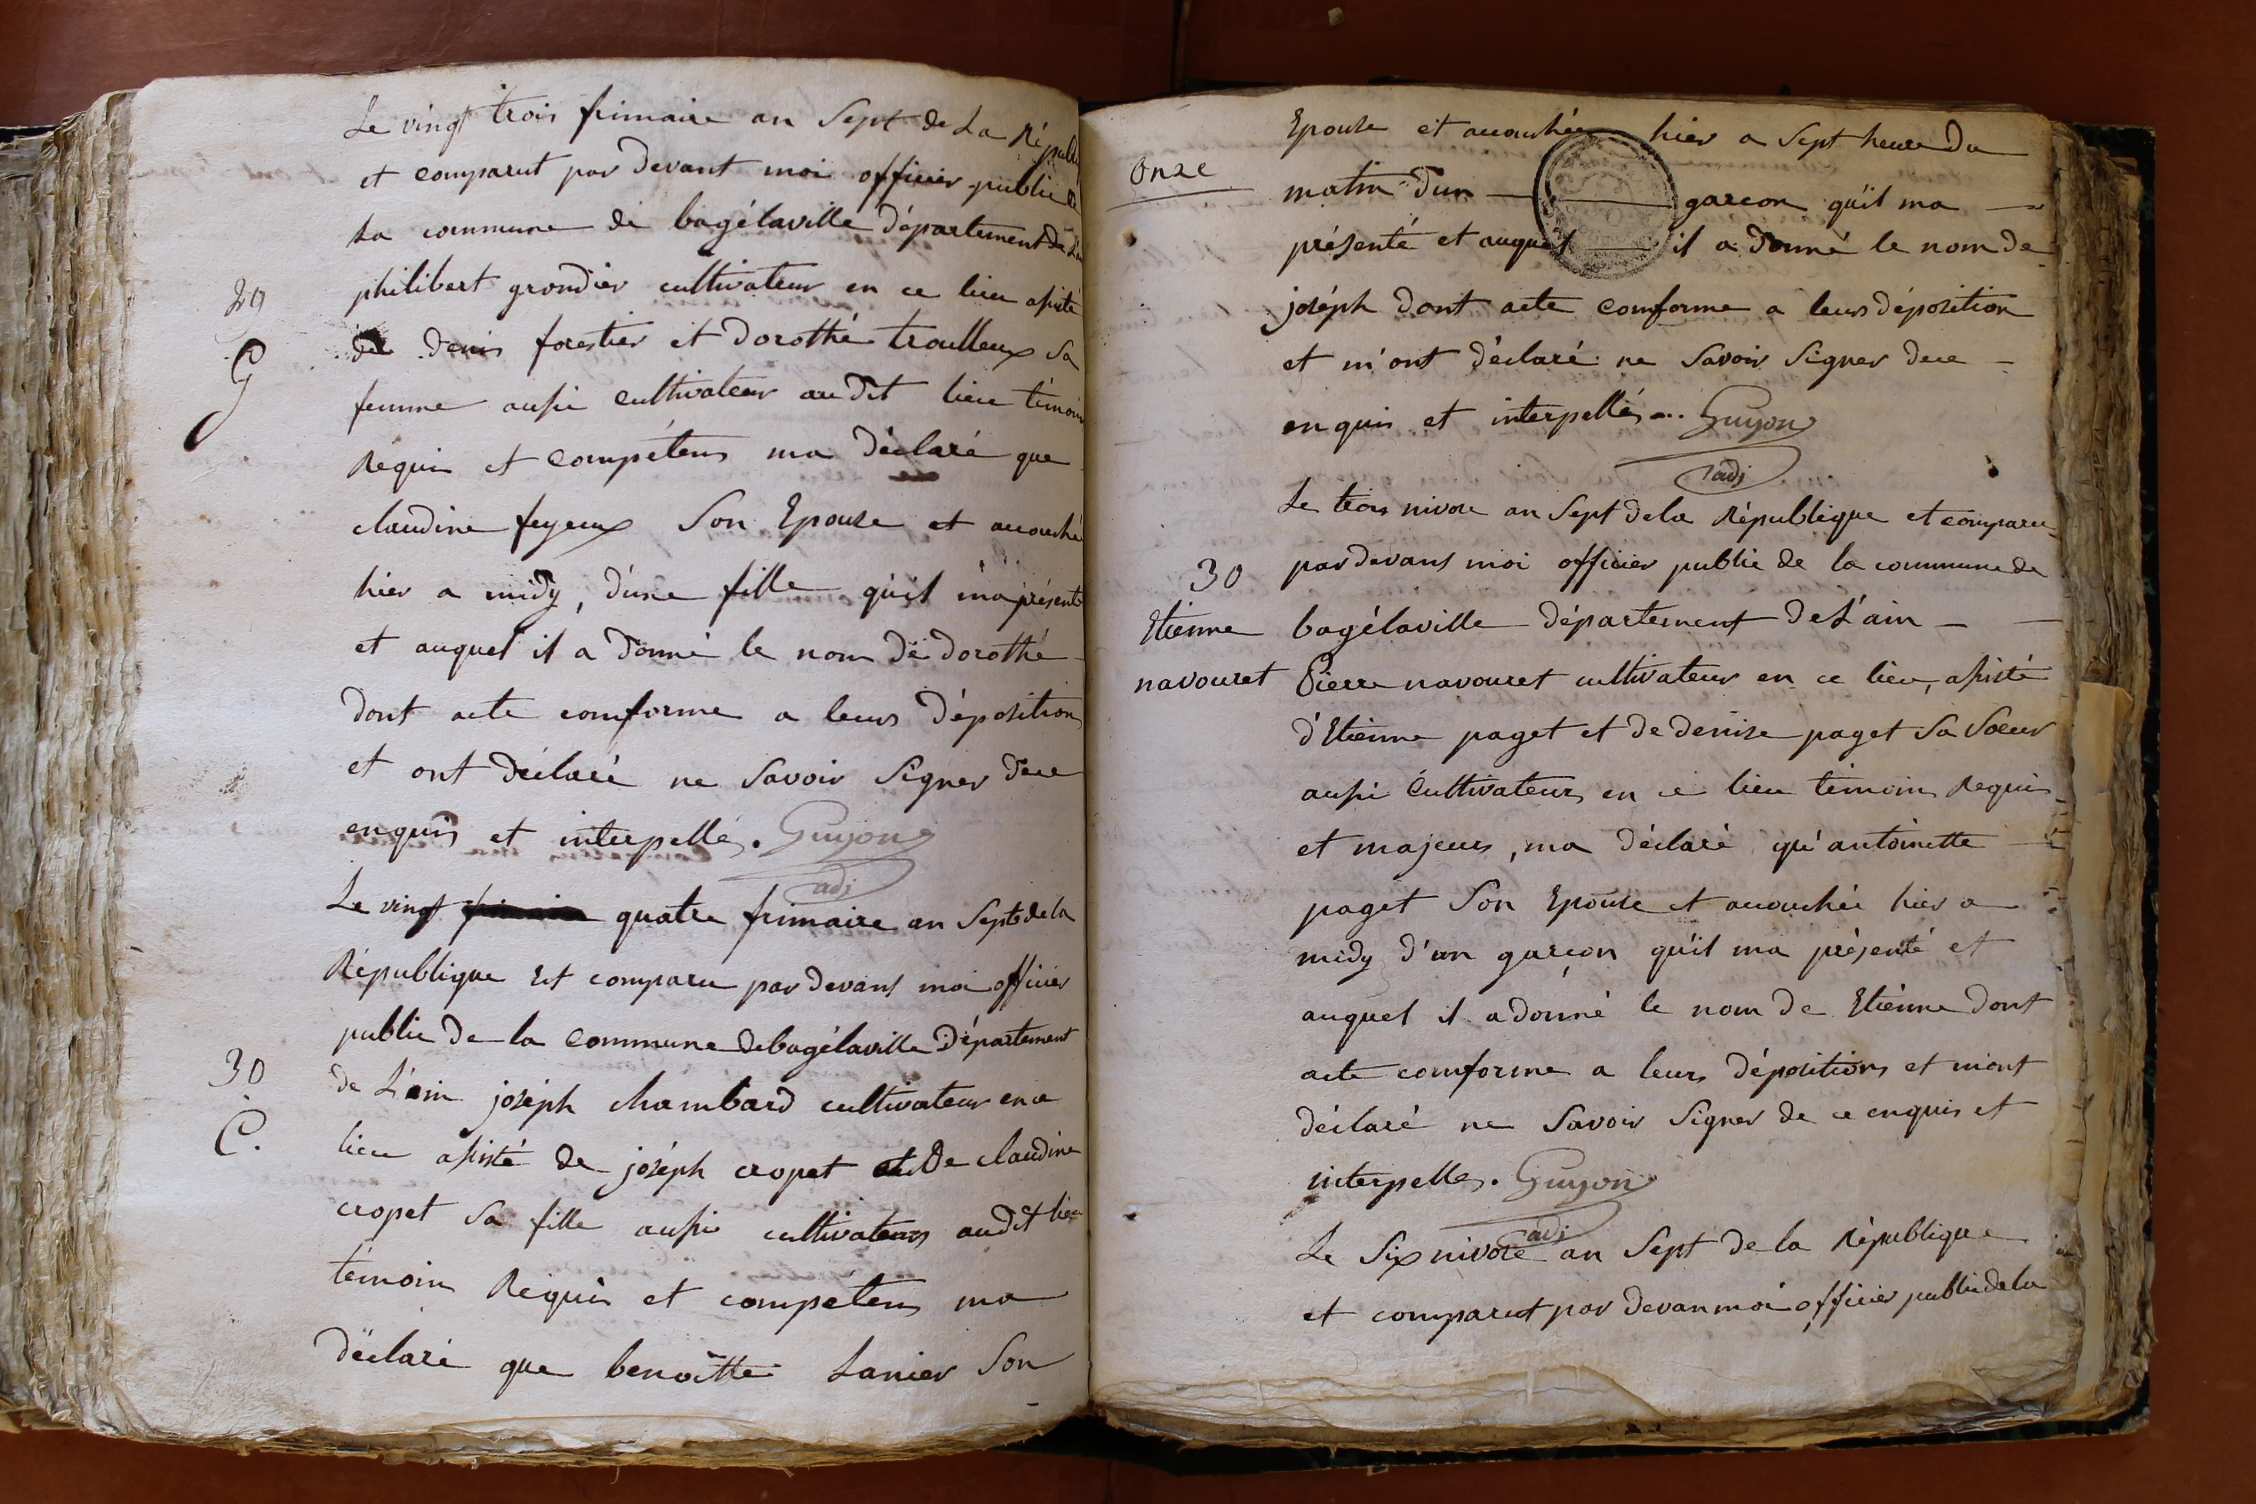 Le vingt trois frimaire an Sept de La Républi
et comparut par devant moi officier public de
La commune de bagélaville département de L'ain
29
philibert grondier cultivateur en ce lieu asisté
G
de denis forestier et dorothé troulleux sa
femme aussi cultivateur audit lieu témoins
Requis et compétens ma déclaré que
claudine feyeux Son Epouse et accouché
hier a midy, d'une fille qu'il m'a présenté
et auquel il a donné le nom de dorothé
dont acte comforme a leurs déposition
et ont déclaré ne Savoir Signer de ce
enquis et interpellés. Guyon
adj
Le vingt quatre frimaire an Sept de la
République Est comparu par devant moi officier
public de la commune de bagélaville Département
30
de L'ain joséph chambard cultivateur en ce
C.
lieu asisté de joséph cropet et de claudine
cropet Sa fille aussi cultivateurs audit lieu
témoin Requis et compétens ma
déclaré que benoitte Lanier Son
Epouse et accouchée hier a Sept heure du
Onze
matin d'un garcon qu'il ma
présenté et auquel il a donné le nom de
joséph dont acte comforme a leurs déposition
et m'ont déclaré ne Savoir Signer de ce
enquis et interpellés... Guyon
adj
Le trois nivose an Sept de la République et comparu
30
par devant moi officier public de la commune de
Etienne
bagélaville département de L'ain
navouret
Pierre navouret cultivateur en ce lieu, asisté
d'Etienne paget et de denise paget Sa Soeur
aussi Cultivateurs en ce lieu témoins Requis
et majeurs, ma déclaré qu'antoinette
paget Son Epouse et accouchée hier a
midy d'un garcon qu'il ma présenté et
auquel il a donné le nom de Etienne dont
acte comforme a leurs dépositions et m'ont
déclaré ne Savoir Signer de ce enquis et
interpellés. Guyon
adj
Le Six nivose an Sept de la République
et comparut par devan moi officier public de la